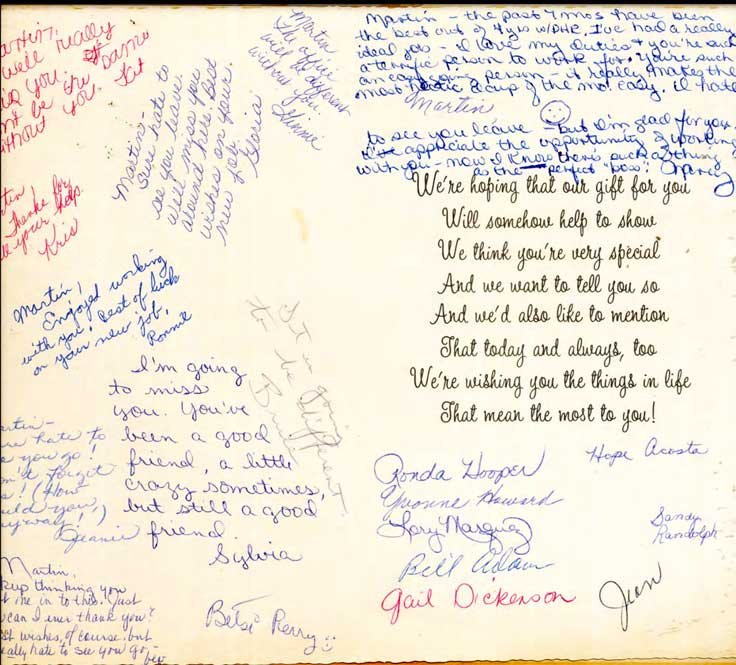 Martin,
we'll really
you.
be the same
without you. Kit
Thanks for
your help.
Kris
Martin -
Sure hate to
see you leave.
will miss you
around here. Best
wishes on your
new job.
Gloria
Martin
The office
will be different
without you
Martin - the past 7 mos have been
the best out of 4 yrs w/DHR. I've had a really
ideal job - I love my duties & you're such
a terrific person to work for. You're such
an easy going person - it really makes the
most hectic of the mo. easy. I hate
Martin
to see you leave - but I'm glad for you.
I've appreciate the opportunity of working
with you - now I know there's such a thing
as the "perfect" boss! Nancy
We're hoping that our gift for you
Will somehow help to show
We think you're very special
And we want to tell you so
And we'd also like to mention
That today and always, too
We're wishing you the things in life
That mean the most to you!
Martin,
Enjoyed working
with you! Best of luck
on your new job.
Ronnie
It's going
to be different
I'm going
to miss
you. You've
been a good
friend, a little
crazy sometimes,
but still a good
friend.
Sylvia
hate to
you go!
forget
(How
you,
anyway!)
Jeanie
Martin,
thinking you
me in to this. Just
can I ever thank you?
wishes, of course, but
really hate to see you go -
Bev
Betsi Perry
Ronda Hooper
Yvonne Howard
Lory Marquez
Bill Adam
Gail Dickenson
Hope Acosta
Sandy
Randolph
Jean